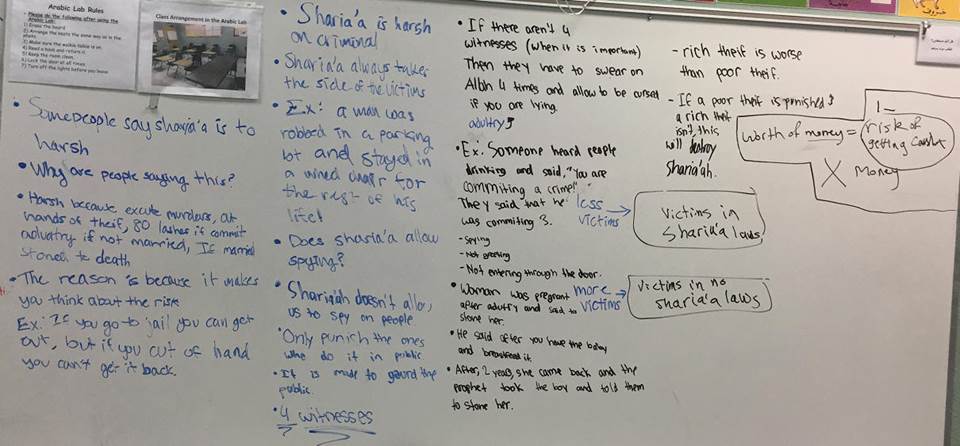 Arabic Lab Rules
Please do the following after using the
Arabic Lab:
1) Erase the board
2) Arrange the seats the same way as in the
photo.
5) Keep the room clean.
6) Lock the door at all times
7) Turn off the lights before you leave
Class Arrangement in the Arabic Lab
• Some people say sharia'a is to
harsh
• Why are people saying this?
• Harsh because excute murders, cut
hands of theif, 80 lashes if commit
aduatry if not married, If married
stoned to death
• The reason is because it makes
you think about the risk
Ex: If you go to jail you can get
out, but if you cut of hand
you can't get it back.
• Sharia'a is harsh
on criminal
• Sharia'a always takes
the side of the victims
• Ex: a man was
robbed in a parking
lot and stayed in
a wheel chair for
the rest of his
life!
• Does sharia'a allow
spying?
• Sharia'ah doesn't allow
us to spy on people
• Only punish the ones
who do it in public
• It is made to gaurd the
public.
• 4 witnesses
• If there aren't 4
witnesses (when it is important)
Then they have to swear on
Allah 4 times and allow to be cursed
if you are lying.
adultry
• Ex: Someone heard people
drinking and said, "You are
commiting a crime!"
They said that he
was commiting 3.
- Spying
- Not greeting
- Not entering through the door.
• Woman was pregnant
after adultry and said to
stone her.
• He said after you have the baby
and breastfeed it.
• After, 2 years, she came back and the
prophet took the boy and told them
to stone her.
- rich theif is worse
than poor theif.
- If a poor theif is punished &
a rich theif
isn't, this
will destroy
Sharia'ah.
less → victims
victims in
sharia'a laws
more → victims
victims in no
sharia'a laws
worth of money = risk of
getting caught
X Money